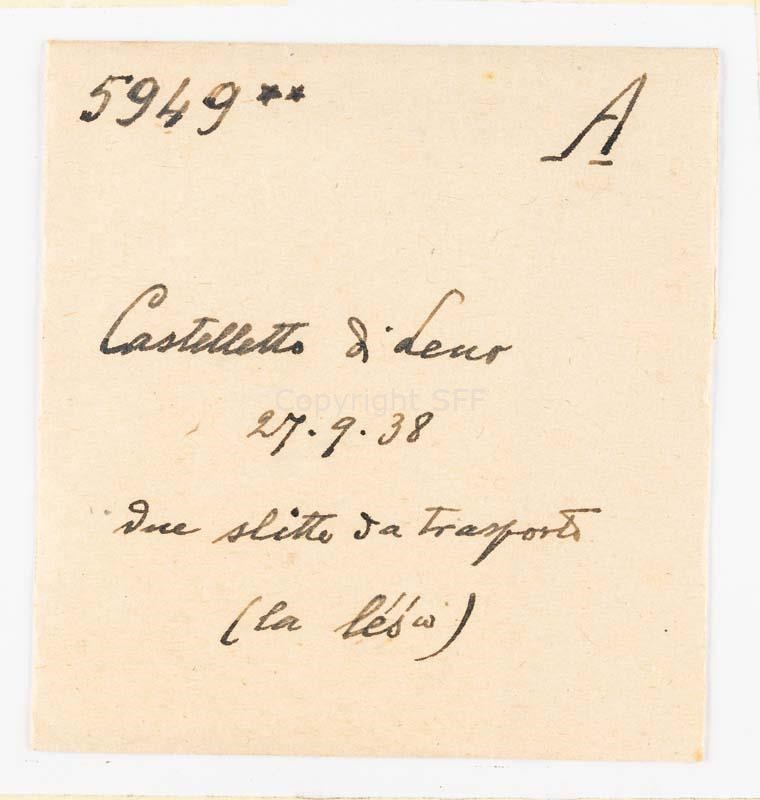 5949** A
Castelletto di Leno
Copyright SFF
27.9.38
due slitte da trasporto
(la